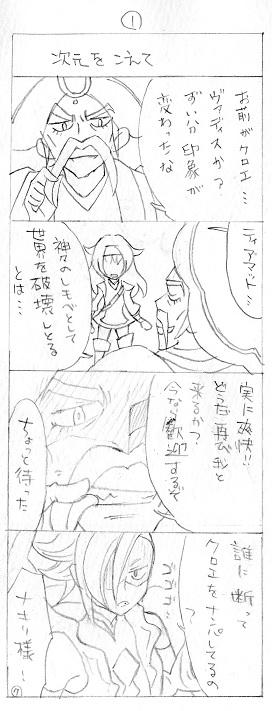 ①
次元をこえて
お前がクロエ…
ヴァディスか？
ずい分印象が
変わったな
ティアマット…
神々のしもべとして
世界を破壊しとる
とは…
実に爽快!!
どうだ再び我と
来るか？
今なら歓迎するぞ
ちょっと待った
誰に断って
クロエをナンパしてるの
？
ゴゴゴ
ナキリ様！